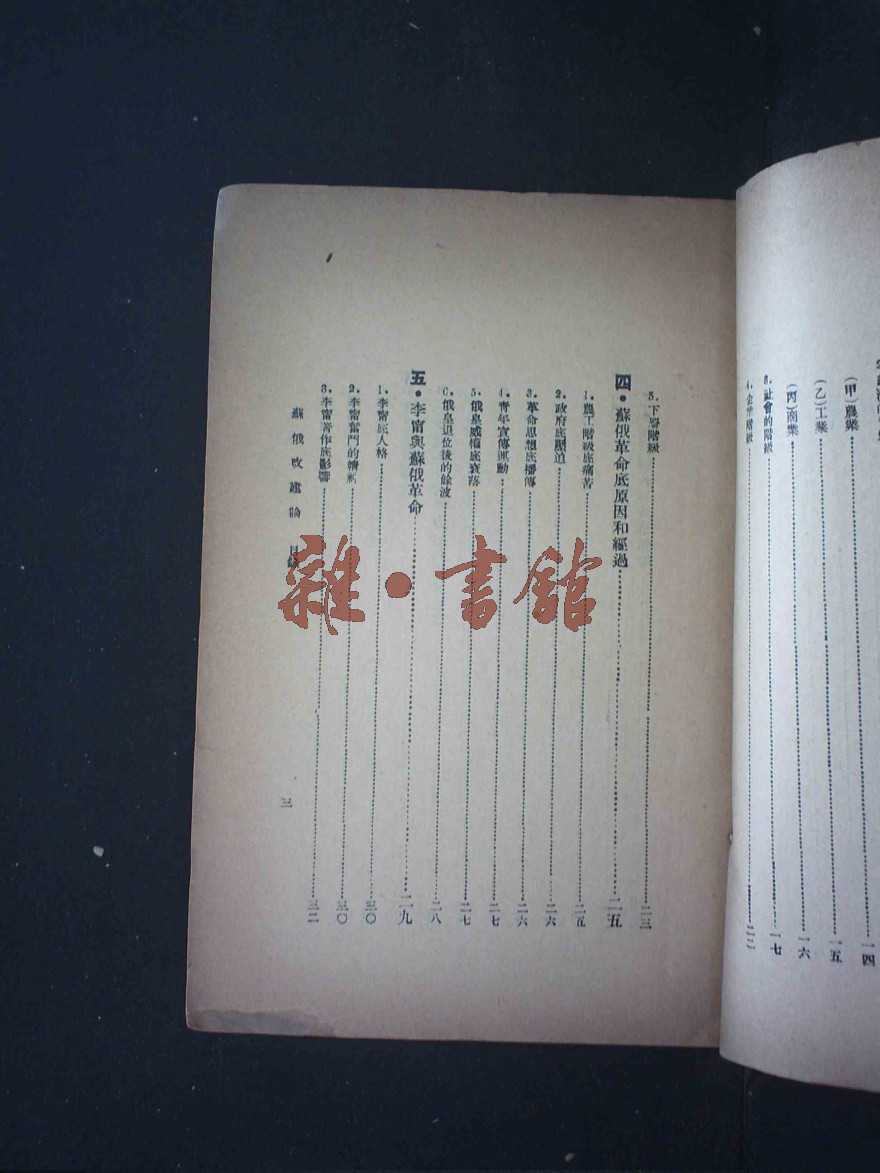 (甲)農業……一四
(乙)工業……一五
(丙)商業……一六
3. 社會的階級……一七
4. 企業階級……二二
5. 下層階級……二三
四・蘇俄革命底原因和經過……二五
1. 農工階級底痛苦……二五
2. 政府底壓迫……二六
3. 革命思想底播傳……二六
4. 青年宣傳運動……二七
5. 俄皇威權底衰落……二七
6. 俄皇退位後的餘波……二八
五・李甯與蘇俄革命……二九
1. 李甯底人格……三〇
2. 李甯奮鬥的精神……三〇
3. 李甯著作底影響……三二
蘇俄改建論 目錄
三
雜・書館